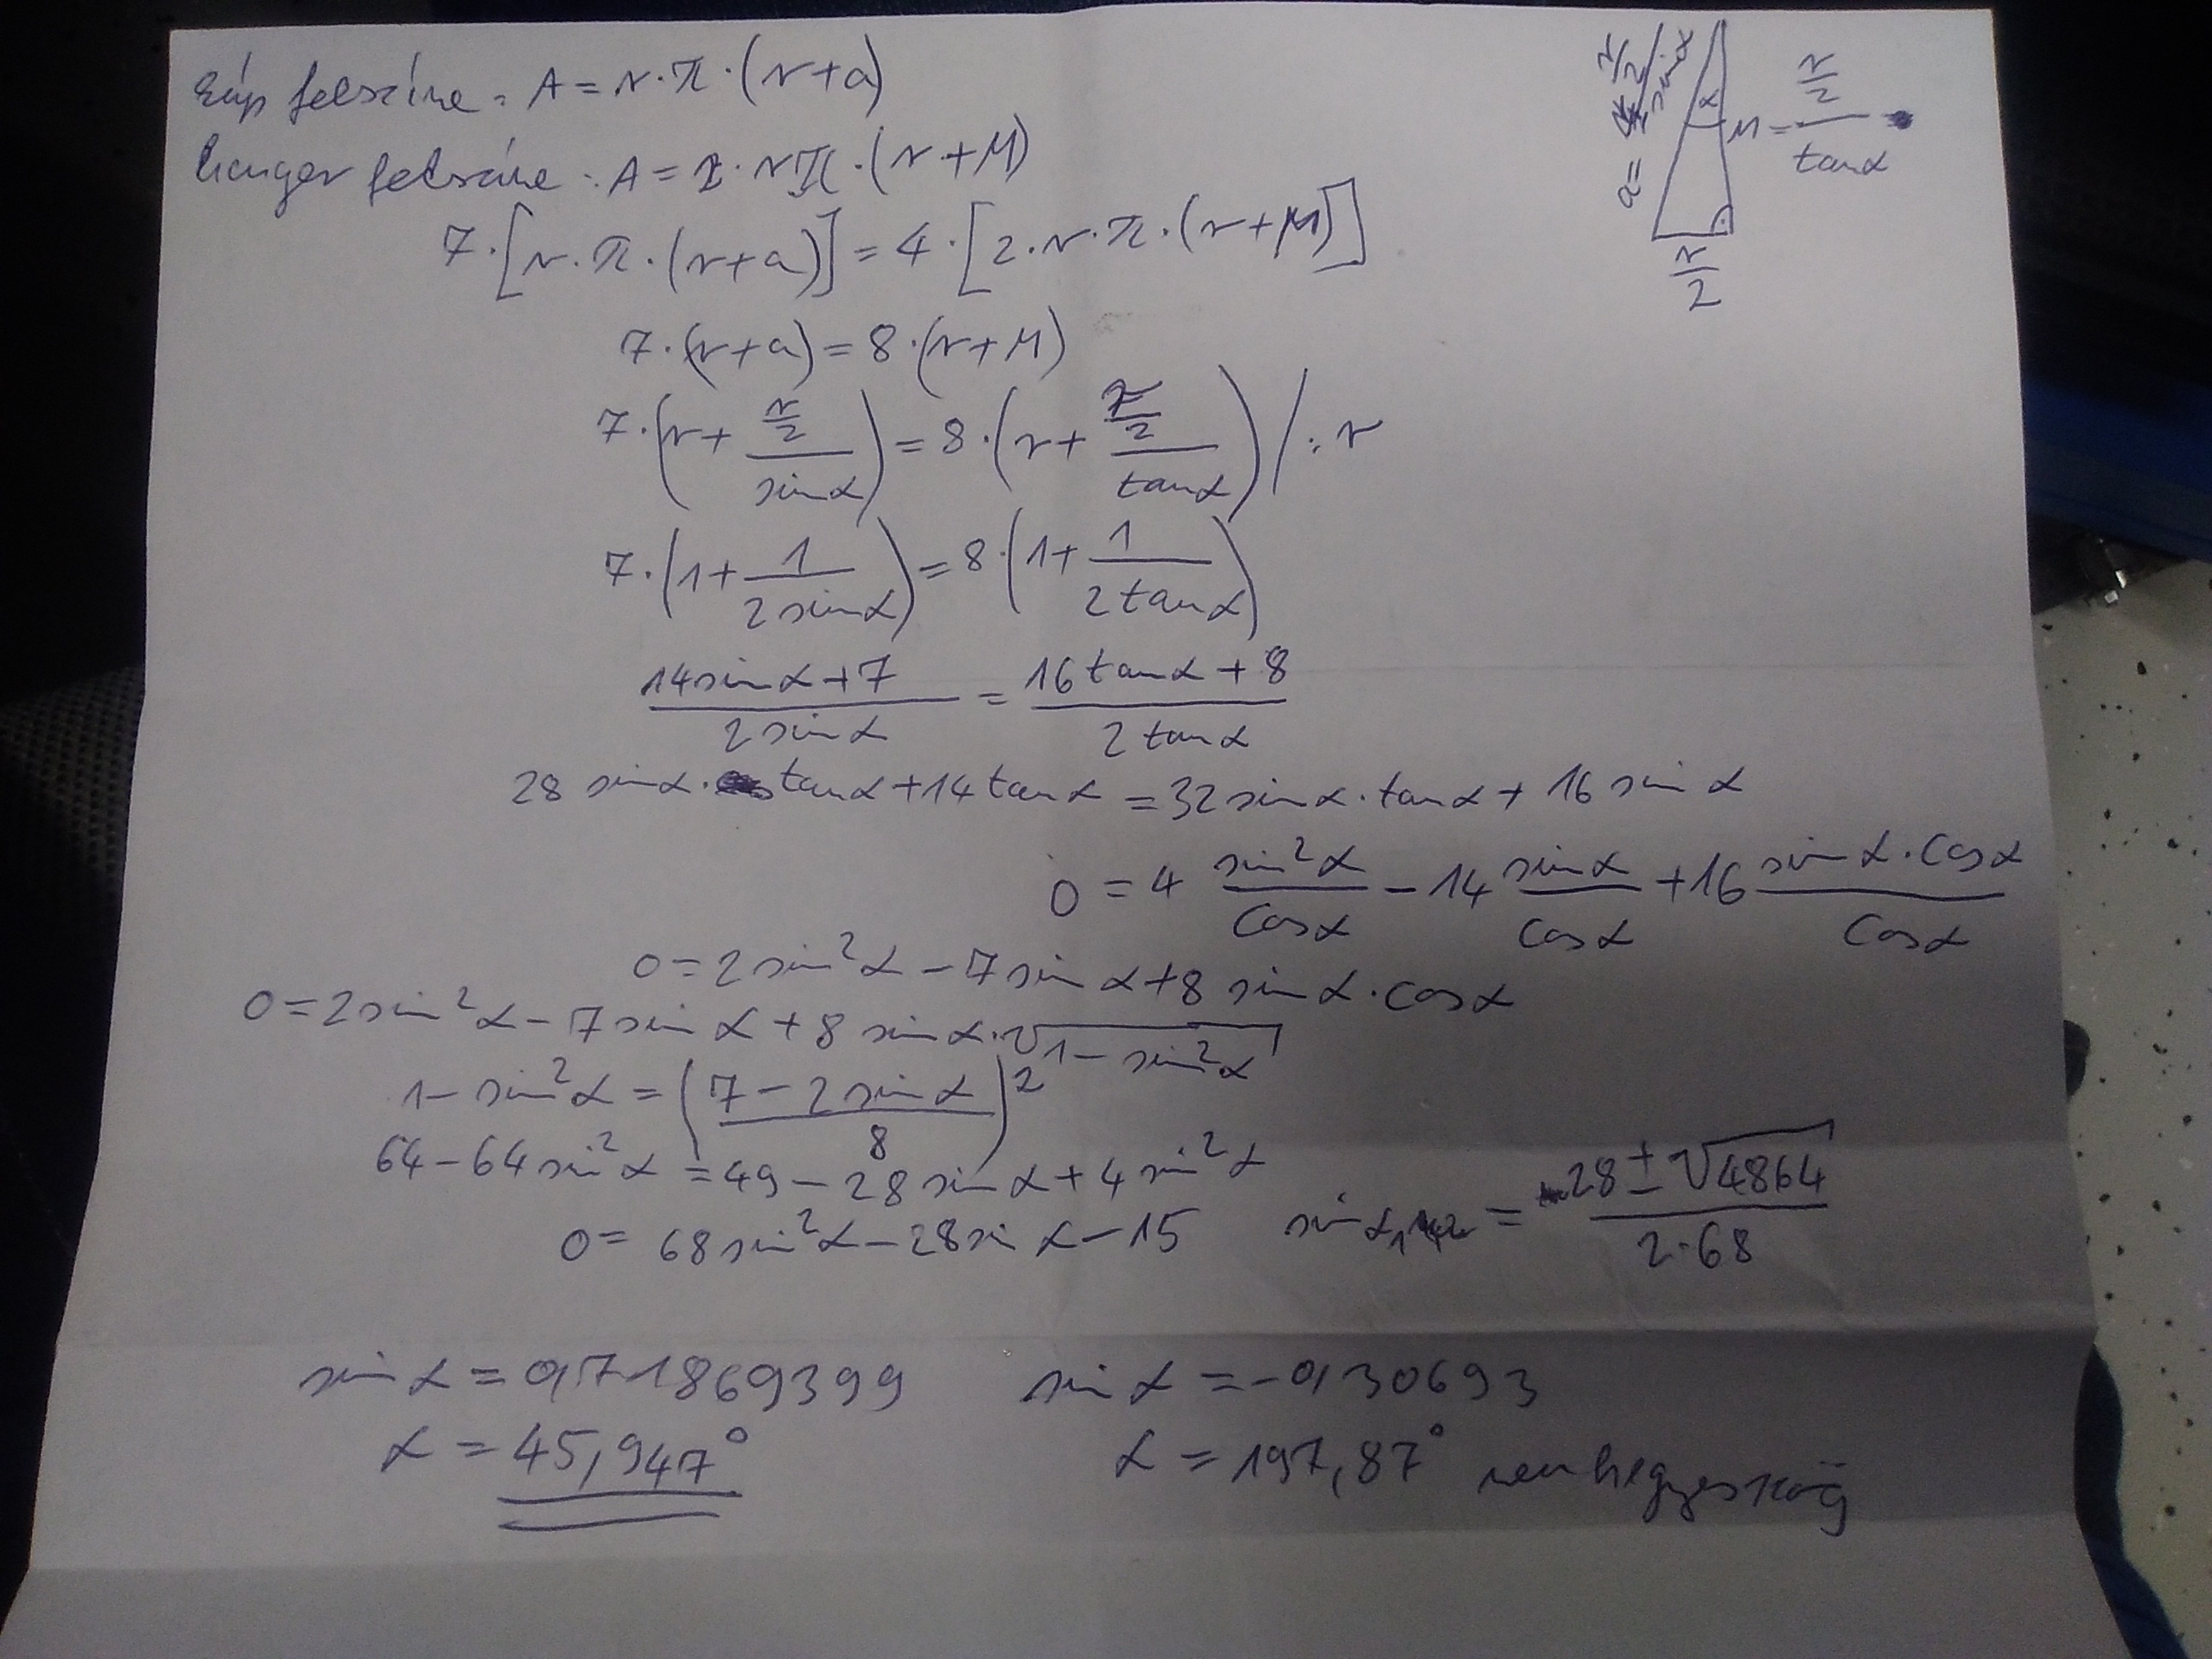 Kúp felszíne: A = r·π·(r+a)
henger felszíne: A = 2·rπ·(r+M)
a = r/2 / sinα
α
M = r/2 / tanα
r/2
7·[r·π·(r+a)] = 4·[2·r·π·(r+M)]
7·(r+a) = 8·(r+M)
7·(r + r/2 / sinα) = 8·(r + r/2 / tanα) / :r
7·(1 + 1/2sinα) = 8·(1 + 1/2tanα)
14sinα+7 / 2sinα = 16tanα+8 / 2tanα
28 sinα·tanα+14tanα = 32sinα·tanα+16sinα
0 = 4 sin²α/cosα − 14 sinα/cosα + 16 sinα·cosα/cosα
0 = 2sin²α − 7sinα + 8sinα·cosα
0 = 2sin²α − 7sinα + 8sinα·√1−sin²α
1−sin²α = (7−2sinα / 8)²
64−64sin²α = 49−28sinα+4sin²α
0 = 68sin²α−28sinα−15
sinα₁,₂ = 28±√4864 / 2·68
sinα = 0,71869399
sinα = −0,30693
α = 45,947°
α = 197,87° nem hegyesszög